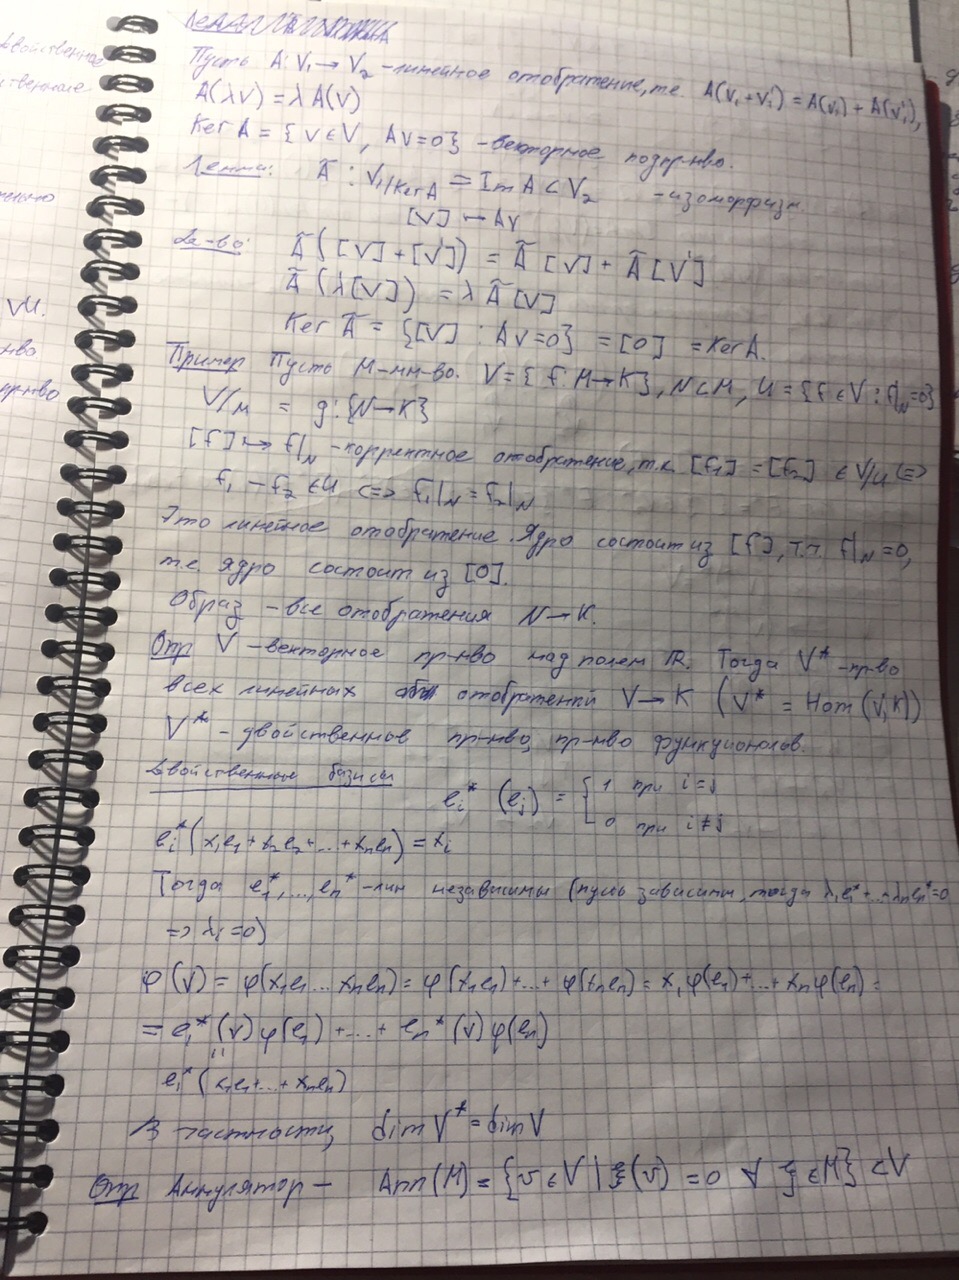 двойственное
ственные
Пусть A: V₁ → V₂ - линейное отображение, т.е. A(v₁ + v₁') = A(v₁) + A(v₁'),
A(λv) = λ A(v)
Ker A = { v ∈ V, Av = 0} - векторное подпр-нво.
Лемма: Ã : V₁/Ker A = Im A ⊂ V₂ - изоморфизм.
[v] ↦ Av
До-во: Ã ([v] + [v']) = Ã [v] + Ã [v']
Ã (λ[v]) = λ Ã [v]
Ker Ã = {[v] : Av = 0} = [0] = Ker A.
Пример Пусть M - мн-во. V = { f: M → K}, N ⊂ M, U = {f ∈ V : f|_N = 0}
V/u = g: {N → K}
[f] ↦ f|_N - корректное отображение, т.к. [f₁] = [f₂] ∈ V/U <=>
f₁ - f₂ ∈ U <=> f₁|_N = f₂|_N
Это линейное отображение. Ядро состоит из [f], т.ч. f|_N = 0,
т.е. ядро состоит из [0].
Образ - все отображения N → K.
Опр V - векторное пр-нво над полем R. Тогда V* - пр-во
всех линейных отображений V → K (V* = Hom (V, K))
V* - двойственное пр-нво, пр-нво функционалов.
Двойственные базисы
e_i* (e_j) = { 1 при i = j
0 при i ≠ j
e_i* (x₁e₁ + x₂e₂ + ... + x_n e_n) = x_i
Тогда e₁*, ..., e_n* - лин независимы (пусть зависимы, тогда λ₁e₁* + ... + λ_n e_n* = 0
=> λ_i = 0)
φ (v) = φ(x₁e₁ ... x_n e_n) = φ(x₁e₁) + ... + φ(x_n e_n) = x₁φ(e₁) + ... + x_n φ(e_n) =
= e₁* (v) φ(e₁) + ... + e_n* (v) φ(e_n)
"
e₁* (x₁e₁ + ... + x_n e_n)
В частности, dim V* = dim V
Опр Аннулятор - Ann (M) = {v ∈ V | ξ(v) = 0 ∀ ξ ∈ M} ⊂ V